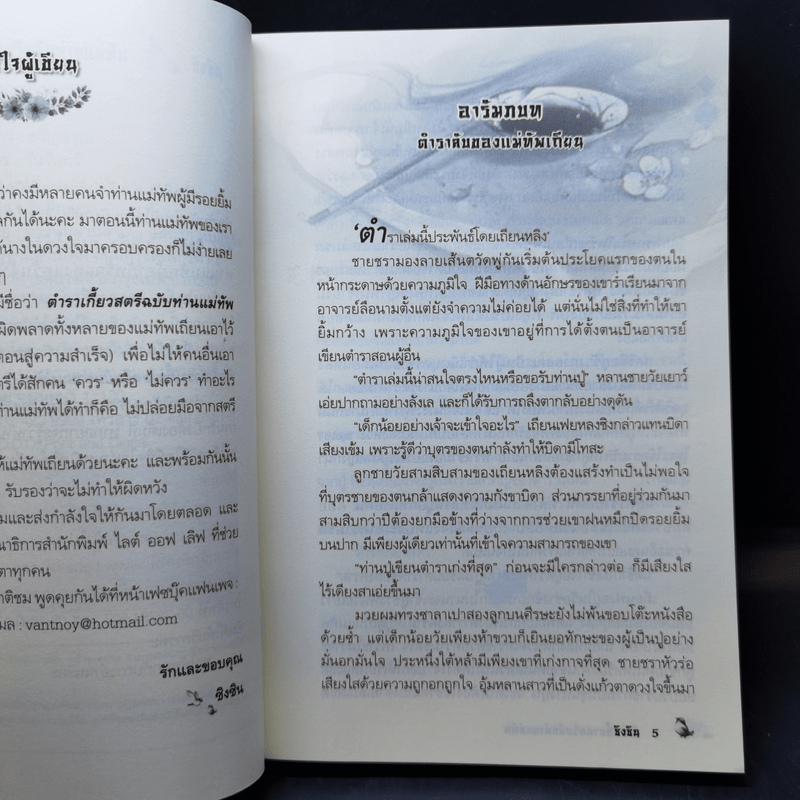 ใจผู้เขียน
ว่าคงมีหลายคนจำท่านแม่ทัพผู้มีรอยยิ้ม
กันได้นะคะ มาตอนนี้ท่านแม่ทัพของเรา
นางในดวงใจมาครอบครองก็ไม่ง่ายเลย
ๆ
มีชื่อว่า ตำราเกี้ยวสตรีฉบับท่านแม่ทัพ
ผิดพลาดทั้งหลายของแม่ทัพเถียนเอาไว้
ตอนสู่ความสำเร็จ) เพื่อไม่ให้คนอื่นเอา
ตรีได้สักคน ‘ควร’ หรือ ‘ไม่ควร’ ทำอะไร
ท่านแม่ทัพได้ทำก็คือ ไม่ปล่อยมือจากสตรี
ให้แม่ทัพเถียนด้วยนะคะ และพร้อมกันนั้น
รับรองว่าจะไม่ทำให้ผิดหวัง
มและส่งกำลังใจให้กันมาโดยตลอด และ
ณาธิการสำนักพิมพ์ ไลต์ ออฟ เลิฟ ที่ช่วย
ตาทุกคน
ติชม พูดคุยกันได้ที่หน้าเฟซบุ๊คแฟนเพจ :
มล : vantnoy@hotmail.com
รักและขอบคุณ
ซิงซิน
อารัมภบท
ตำราลับของแม่ทัพเถียน
‘ตำราเล่มนี้ประพันธ์โดยเถียนหลิง’
ชายชรามองลายเส้นตวัดพู่กันเริ่มต้นประโยคแรกของตนใน
หน้ากระดาษด้วยความภูมิใจ ฝีมือทางด้านอักษรของเขาร่ำเรียนมาจาก
อาจารย์ลือนามตั้งแต่ยังจำความไม่ค่อยได้ แต่นั่นไม่ใช่สิ่งที่ทำให้เขา
ยิ้มกว้าง เพราะความภูมิใจของเขาอยู่ที่การได้ตั้งตนเป็นอาจารย์
เขียนตำราสอนผู้อื่น
“ตำราเล่มนี้น่าสนใจตรงไหนหรือขอรับท่านปู่” หลานชายวัยเยาว์
เอ่ยปากถามอย่างลังเล และก็ได้รับการถลึงตากลับอย่างดุดัน
“เด็กน้อยอย่างเจ้าจะเข้าใจอะไร” เถียนเฟยหลงชิงกล่าวแทนบิดา
เสียงเข้ม เพราะรู้ดีว่าบุตรของตนกำลังทำให้บิดามีโทสะ
ลูกชายวัยสามสิบสามของเถียนหลิงต้องแสร้งทำเป็นไม่พอใจ
ที่บุตรชายของตนกล้าแสดงความกังขาบิดา ส่วนภรรยาที่อยู่ร่วมกันมา
สามสิบกว่าปีต้องยกมือข้างที่ว่างจากการช่วยเขาฝนหมึกปิดรอยยิ้ม
บนปาก มีเพียงผู้เดียวเท่านั้นที่เข้าใจความสามารถของเขา
“ท่านปู่เขียนตำราเก่งที่สุด” ก่อนจะมีใครกล่าวต่อ ก็มีเสียงใส
ไร้เดียงสาเอ่ยขึ้นมา
มวยผมทรงซาลาเปาสองลูกบนศีรษะยังไม่พ้นขอบโต๊ะหนังสือ
ด้วยซ้ำ แต่เด็กน้อยวัยเพียงห้าขวบก็เยินยอทักษะของผู้เป็นปู่อย่าง
มั่นอกมั่นใจ ประหนึ่งใต้หล้ามีเพียงเขาที่เก่งกาจที่สุด ชายชราหัวร่อ
เสียงใสด้วยความถูกอกถูกใจ อุ้มหลานสาวที่เป็นดั่งแก้วตาดวงใจขึ้นมา
ซิงซิน 5